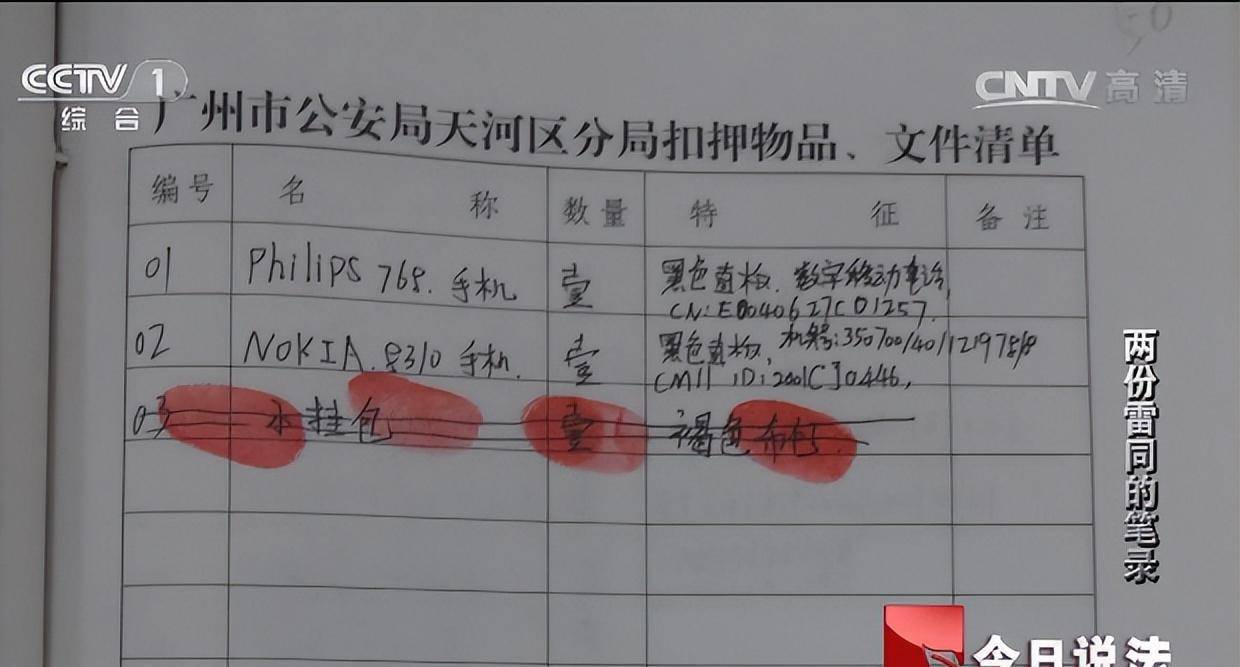 50
CCTV 1
综合
CNTV 高清
广州市公安局天河区分局扣押物品、文件清单
编号 名称 数量 特征 备注
01 Philips 768. 手机 壹 黑色直板. 数字移动电话,
CN:E0040627CD1257.
02 NOKIA. 8310 手机. 壹 黑色直板, 机号:350700/40/121978/8
CMII ID:2001CJ0446,
03 挂包 壹 褐色布包.
两份雷同的笔录
今日说法